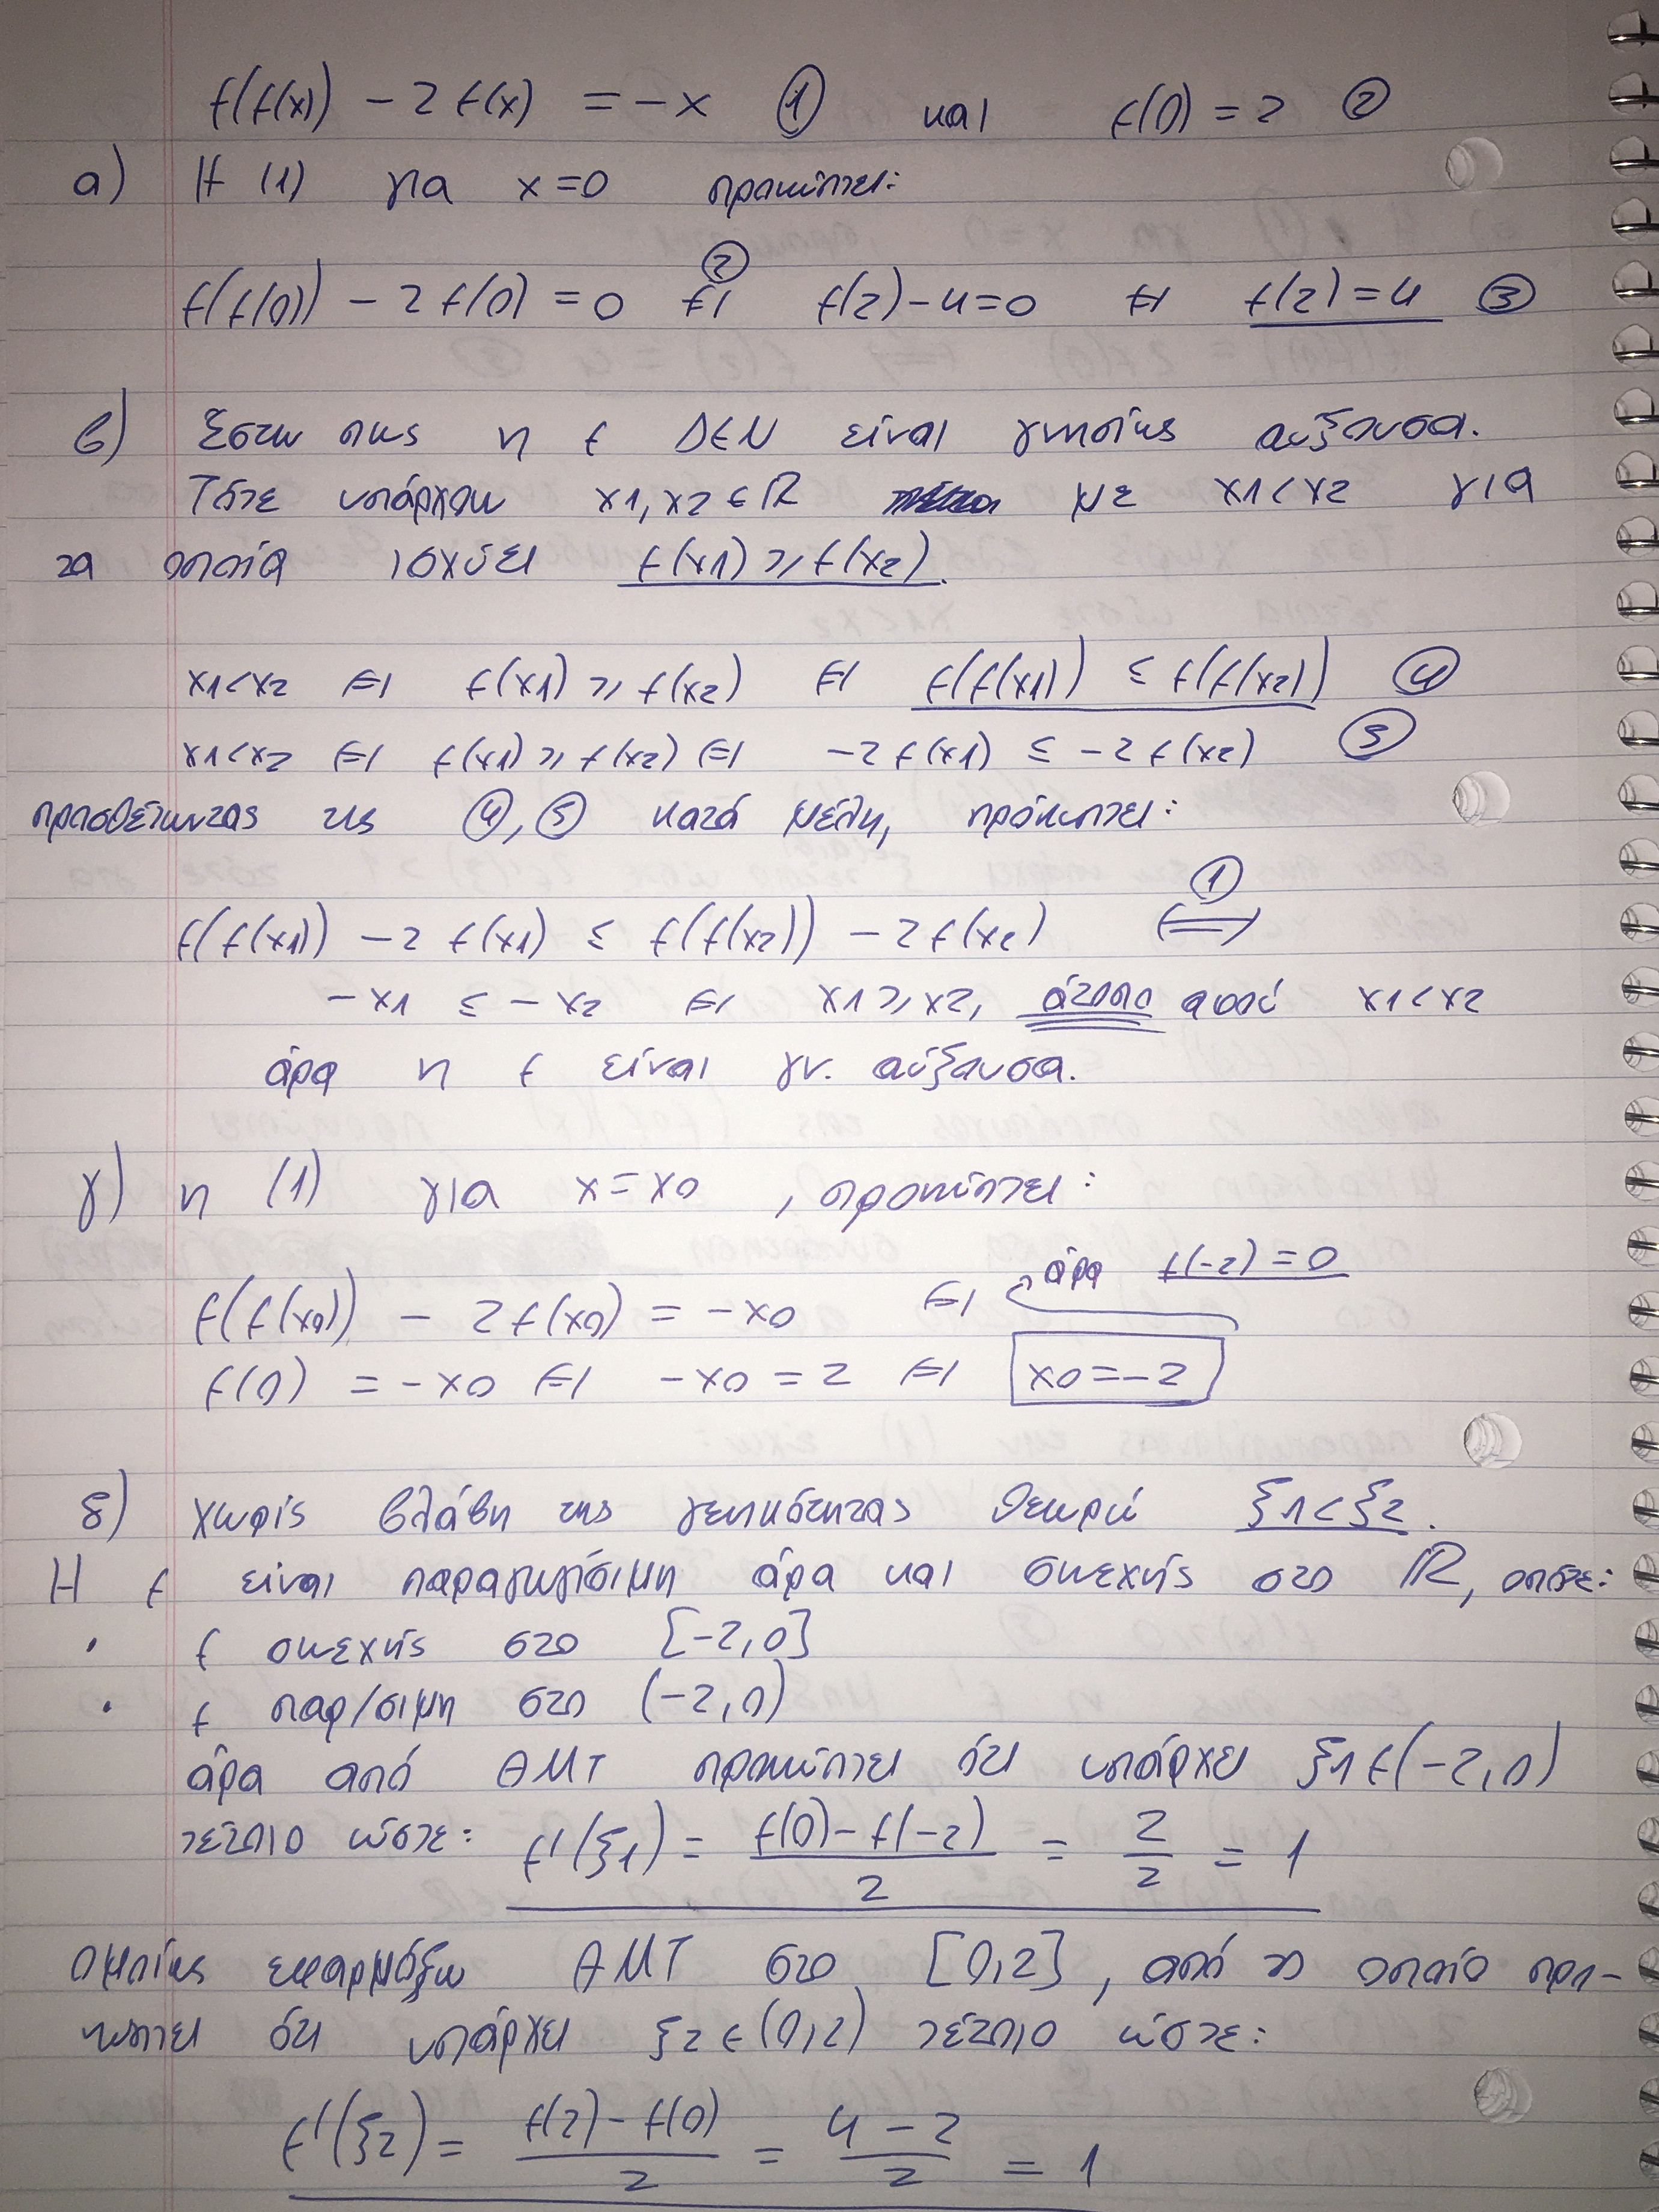 f(f(x)) - 2f(x) = -x ① και f(0) = 2 ②
α) Η (1) για x=0 προκύπτει:
f(f(0)) - 2f(0) = 0 ⇔ ② f(2)-4=0 ⇔ f(2)=4 ③
β) Έστω πως η f ΔΕΝ είναι γνησίως αύξουσα.
Τότε υπάρχουν x1,x2 ∈ ℝ με x1<x2 για
τα οποία ισχύει f(x1) ≥ f(x2).
x1<x2 ⇔ f(x1) ≥ f(x2) ⇔ f(f(x1)) ≤ f(f(x2)) ④
x1<x2 ⇔ f(x1) ≥ f(x2) ⇔ -2f(x1) ≤ -2f(x2) ⑤
προσθέτωντας τις ④,⑤ κατά μέλη, πρόκυπτει:
f(f(x1)) - 2f(x1) ≤ f(f(x2)) - 2f(x2) ⇔ ①
-x1 ≤ -x2 ⇔ x1 ≥ x2, άτοπο αφού x1<x2
άρα η f είναι γν. αύξουσα.
γ) η (1) για x=x0, προκύπτει:
άρα f(-2)=0
f(f(x0)) - 2f(x0) = -x0 ⇔
f(0) = -x0 ⇔ -x0 = 2 ⇔ x0=-2
δ) χωρίς βλάβη της γενικότητας θεωρώ ξ1<ξ2.
Η f είναι παραγωγίσιμη άρα και συνεχής στο ℝ, οπότε:
· f συνεχής στο [-2,0]
· f παρ/σιμη στο (-2,0)
άρα από ΘΜΤ προκύπτει ότι υπάρχει ξ1∈(-2,0)
τέτοιο ώστε: f'(ξ1) = f(0)-f(-2) / 2 = 2/2 = 1
ομοίως εφαρμόζω ΘΜΤ στο [0,2], από το οποίο προ-
κυπτει ότι υπάρχει ξ2∈(0,2) τέτοιο ώστε:
f'(ξ2) = f(2)-f(0) / 2 = 4-2 / 2 = 1